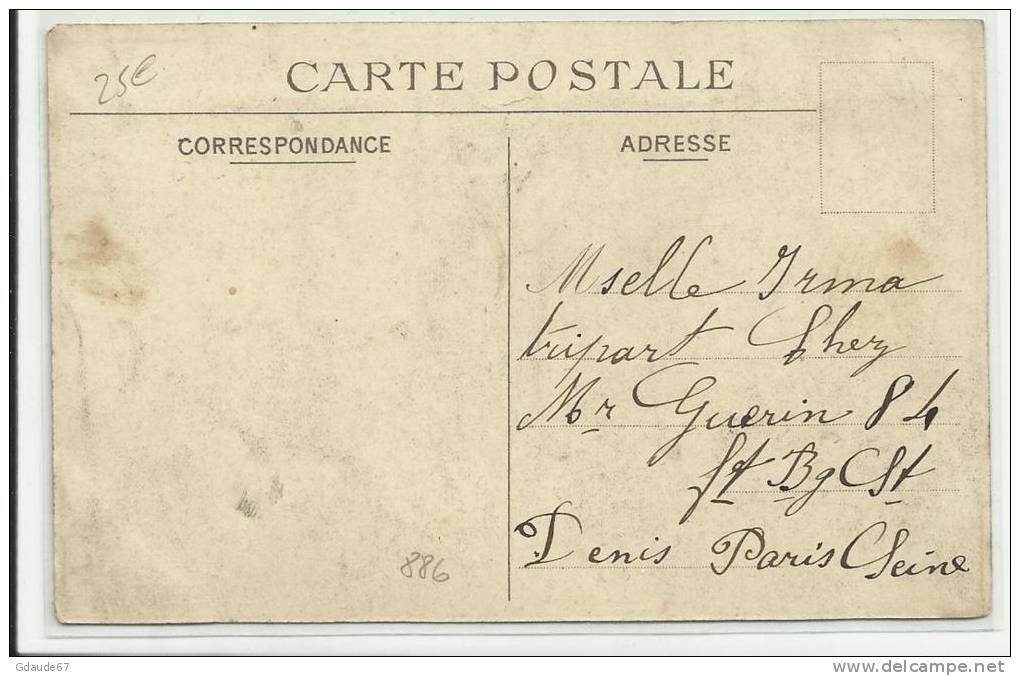 25€
CARTE POSTALE
CORRESPONDANCE
ADRESSE
Mselle Irma
tripart Chez
Mr Guerin 84
ft Bg St
Denis Paris Seine
886
Gdaude67
www.delcampe.net